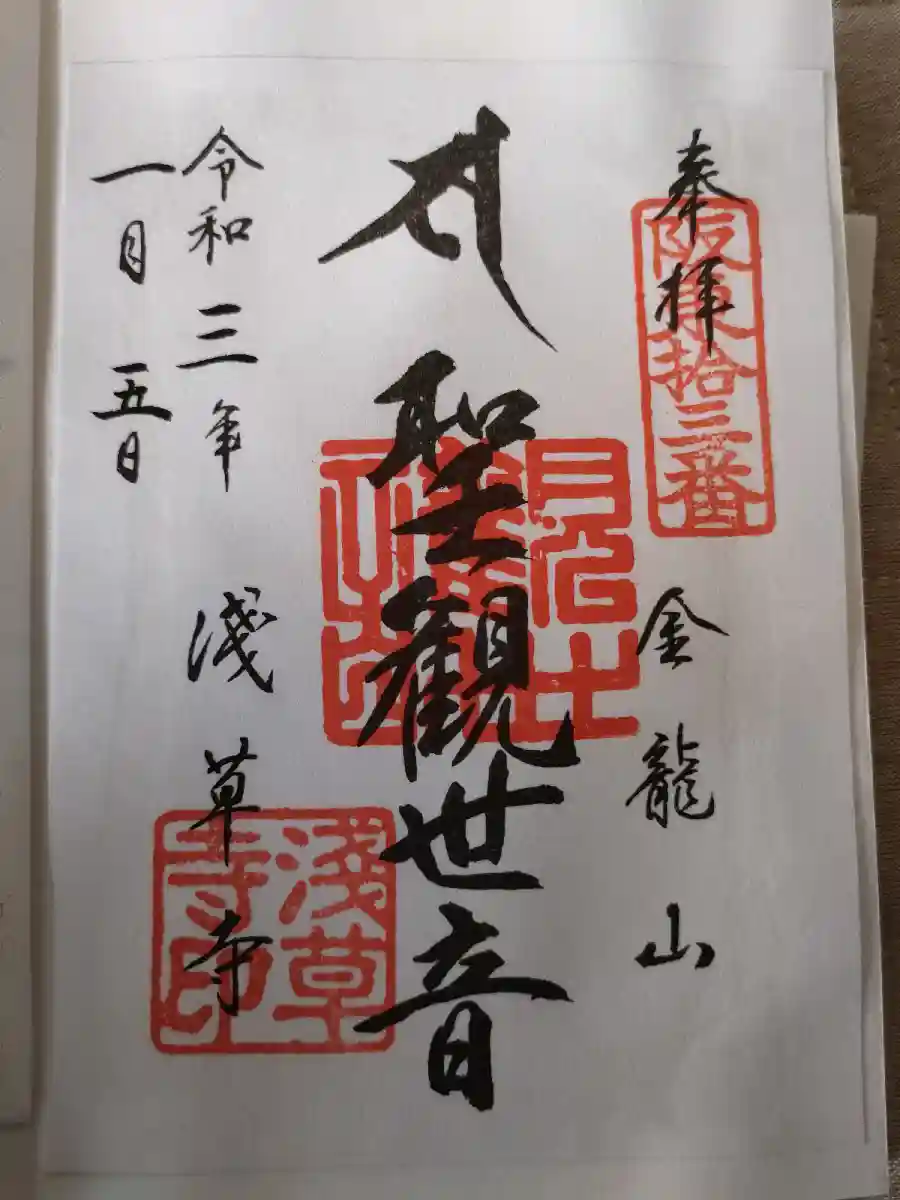 奉拝
阪東拾三番
金龍山
聖観世音
浅草寺
浅草寺印
令和三年
一月五日